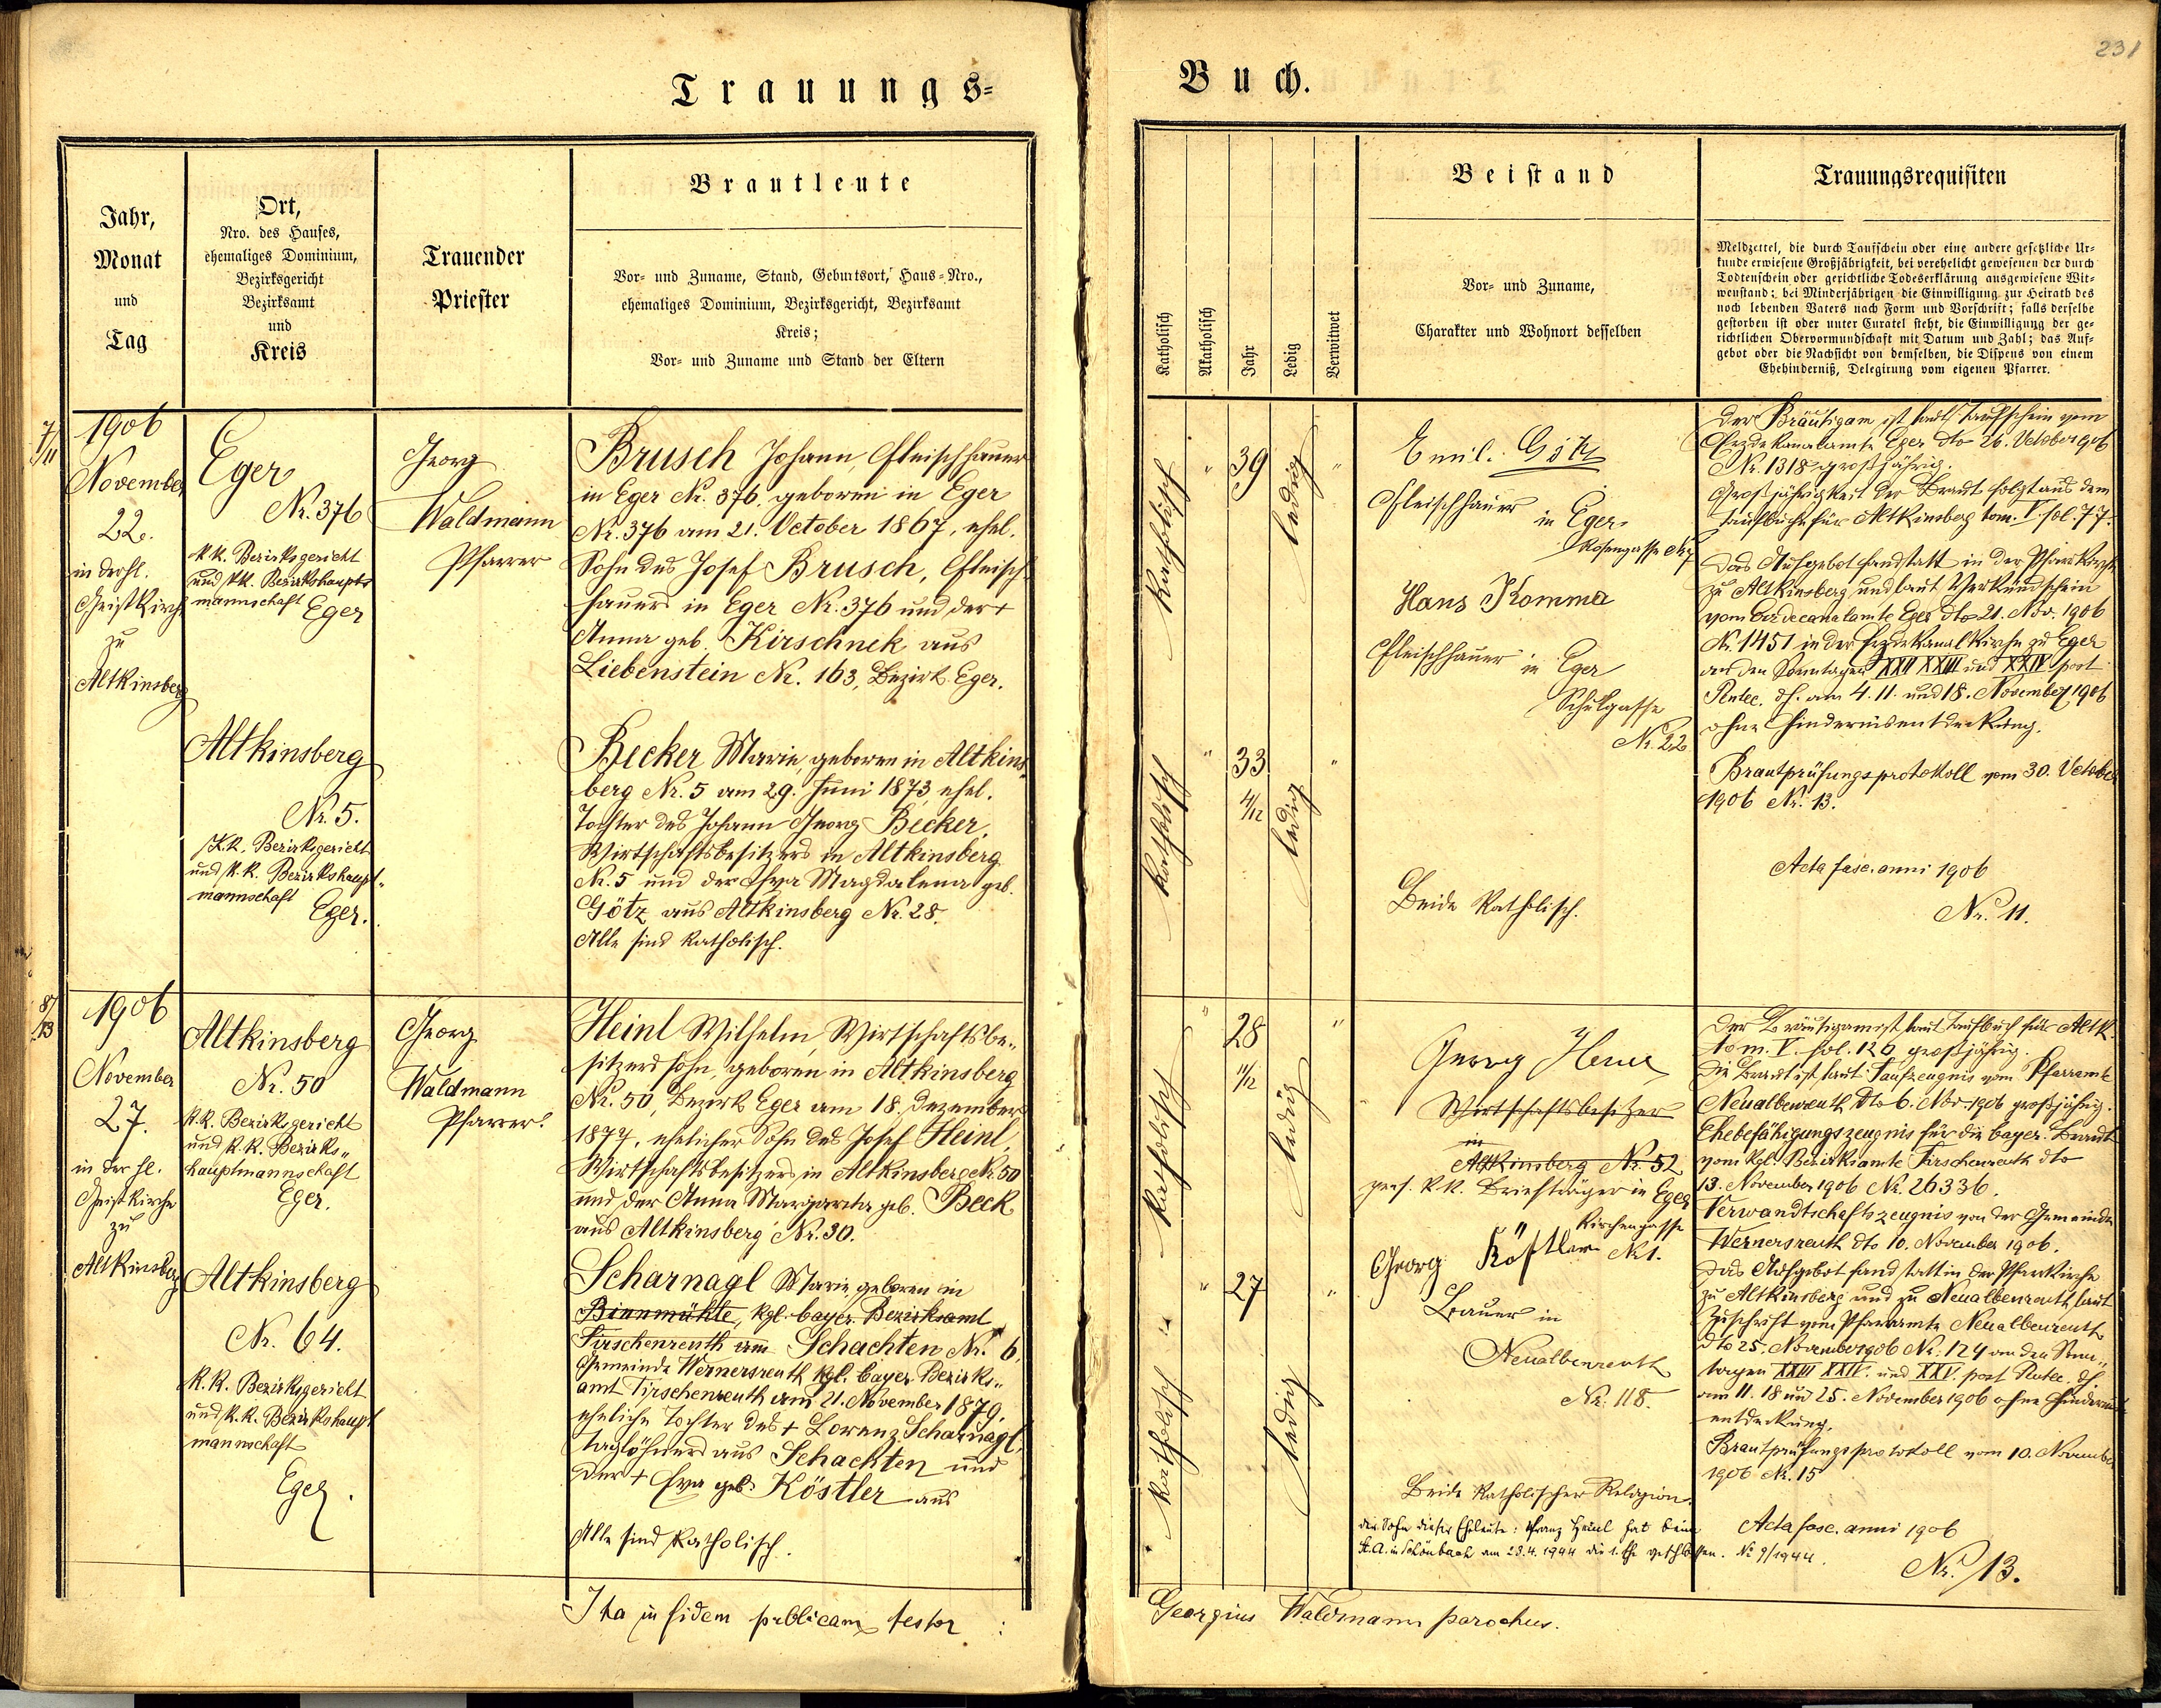 231
Trauungs-
Buch.
Jahr,
Monat
und
Tag
Ort,
Nro. des Hauses,
ehemaliges Dominium,
Bezirksgericht
Bezirksamt
und
Kreis
Trauender
Priester
Brautleute
Vor- und Zuname, Stand, Geburtsort, Haus-Nro.,
ehemaliges Dominium, Bezirksgericht, Bezirksamt
Kreis;
Vor- und Zuname und Stand der Eltern
Katholisch
Akatholisch
Jahr
Ledig
Verwitwet
Beistand
Vor- und Zuname,
Charakter und Wohnort desselben
Trauungsrequisiten
Meldzettel, die durch Taufschein oder eine andere gesetzliche Ur-
kunde erwiesene Großjährigkeit, bei verehelicht gewesenen der durch
Todtenschein oder gerichtliche Todeserklärung ausgewiesene Wit-
wenstand; bei Minderjährigen die Einwilligung zur Heirath des
noch lebenden Vaters nach Form und Vorschrift; falls derselbe
gestorben ist oder unter Curatel steht, die Einwilligung der ge-
richtlichen Obervormundschaft mit Datum und Zahl; das Auf-
gebot oder die Nachsicht von demselben, die Dispens von einem
Ehehinderniß, Delegirung vom eigenen Pfarrer.
7/11
1906
November
22.
in der hl.
Geistkirche
zu
Altkinsberg
Eger
Nr. 376
k.k. Bezirksgericht
und k.k. Bezirkshaupt-
mannschaft Eger
Altkinsberg
Nr. 5.
K.k. Bezirksgericht
und k.k. Bezirkshaupt-
mannschaft
Eger.
Georg
Waldmann
Pfarrer
Brusch Johann, Fleischhauer
in Eger Nr. 376, geboren in Eger
Nr. 376 am 21. October 1867, ehel.
Sohn des Josef Brusch, Fleisch-
hauers in Eger Nr. 376 und der +
Anna geb. Kirschnek aus
Liebenstein Nr. 163, Bezirk Eger.
Becker Marie, geboren in Altkins-
berg Nr. 5 am 29. Juni 1873, ehel.
Tochter des Johann Georg Becker,
Wirtschaftsbesitzers in Altkinsberg
Nr. 5 und der Eva Magdalena geb.
Götz aus Altkinsberg Nr. 28.
Alle sind katholisch.
katholisch " 39 ledig "
katholisch " 33 4/12 ledig "
Emil Götz
Fleischhauer
in Eger
Rosengasse Nr. 7
Hans Komma
Fleischhauer in Eger
Schulgasse
Nr. 22
Beide katholisch.
Der Bräutigam ist laut Taufschein vom
Erzdekanalamte Eger dto 26. October 1906
Nr. 1318 großjährig.
Großjährigkeit der Braut folgt aus dem
Taufbuche für Altkinsberg tom. V. fol. 77.
Das Aufgebot fand statt in der Pfarrkirche
zu Altkinsberg und laut Verkündschein
vom Erzdecanalamte Eger dto 21. Nov. 1906
Nr. 1451 in der Erzdekanalkirche zu Eger
an den Sonntagen XXII XXIII und XXIV post
Pentec. d.h. am 4. 11. und 18. November 1906
ohne Hindernisentdeckung.
Brautprüfungsprotokoll vom 30. October
1906 Nr. 13.
Acta fasc. anni 1906
Nr. 11.
8/13
1906
November
27.
in der hl.
Geistkirche
zu
Altkinsberg
Altkinsberg
Nr. 50
k.k. Bezirksgericht
und k.k. Bezirks-
hauptmannschaft
Eger.
Altkinsberg
Nr. 64.
K.k. Bezirksgericht
und k.k. Bezirkshaupt
mannschaft
Eger.
Georg
Waldmann
Pfarrer.
Heinl Wilhelm, Wirtschaftsbe-
sitzerssohn, geboren in Altkinsberg
Nr. 50, Bezirk Eger am 18. Dezember
1877, ehelicher Sohn des Josef Heinl,
Wirtschaftsbesitzers in Altkinsberg Nr. 50
und der Anna Margaretha geb. Beck
aus Altkinsberg Nr. 30.
Scharnagl Marie, geboren in
Binnmühle, kgl. bayer. Bezirksamt
Tirschenreuth am Schachten Nr. 6,
Gemeinde Wernersreuth kgl. bayer. Bezirks-
amt Tirschenreuth am 21. November 1879,
eheliche Tochter des + Lorenz Scharnagl,
Taglöhners aus Schachten und
der + Eva geb. Köstler aus
Alle sind katholisch.
katholisch " 28 11/12 ledig "
katholisch " 27 ledig "
Georg
Wirtschaftsbesitzer
in
Altkinsberg Nr. 52
pens. k.k. Briefträger in Eger
Kirchengasse
Nr. 1.
Georg Köstler
Bauer in
Neualbenreuth
Nr. 118.
Beide katholischer Religion.
Der Bräutigam ist laut Taufbuch für Altk.
tom. V. fol. 120 großjährig.
Die Braut ist laut Taufzeugnis vom Pfarramte
Neualbenreuth dto 6. Nov. 1906 großjährig.
Ehebefähigungszeugnis für die bayer. Braut
vom kgl. Bezirksamte Tirschenreuth dto
13. November 1906 Nr. 26336.
Verwandtschaftszeugnis von der Gemeinde
Wernersreuth dto 10. November 1906.
Das Aufgebot fand statt in der Pfarrkirche
zu Altkinsberg und zu Neualbenreuth laut
Zuschrift vom Pfarramte Neualbenreuth
dto 25. November 1906 Nr. 124 an den Sonn-
tagen XXIII XXIV. und XXV. post Pentec. d.h.
am 11. 18 und 25. November 1906 ohne Hindernis
entdeckung.
Brautprüfungsprotokoll vom 10. November
1906 Nr. 15
Acta fasc. anni 1906
Nr. 13.
Der Sohn dieser Eheleute: Franz Heinl hat beim
St.A. in Schönbach am 23.4.1944 die 1. Ehe geschlossen. Nr 9/1944.
Ita in fidem publicam testor :
Georgius Waldmann parochus.